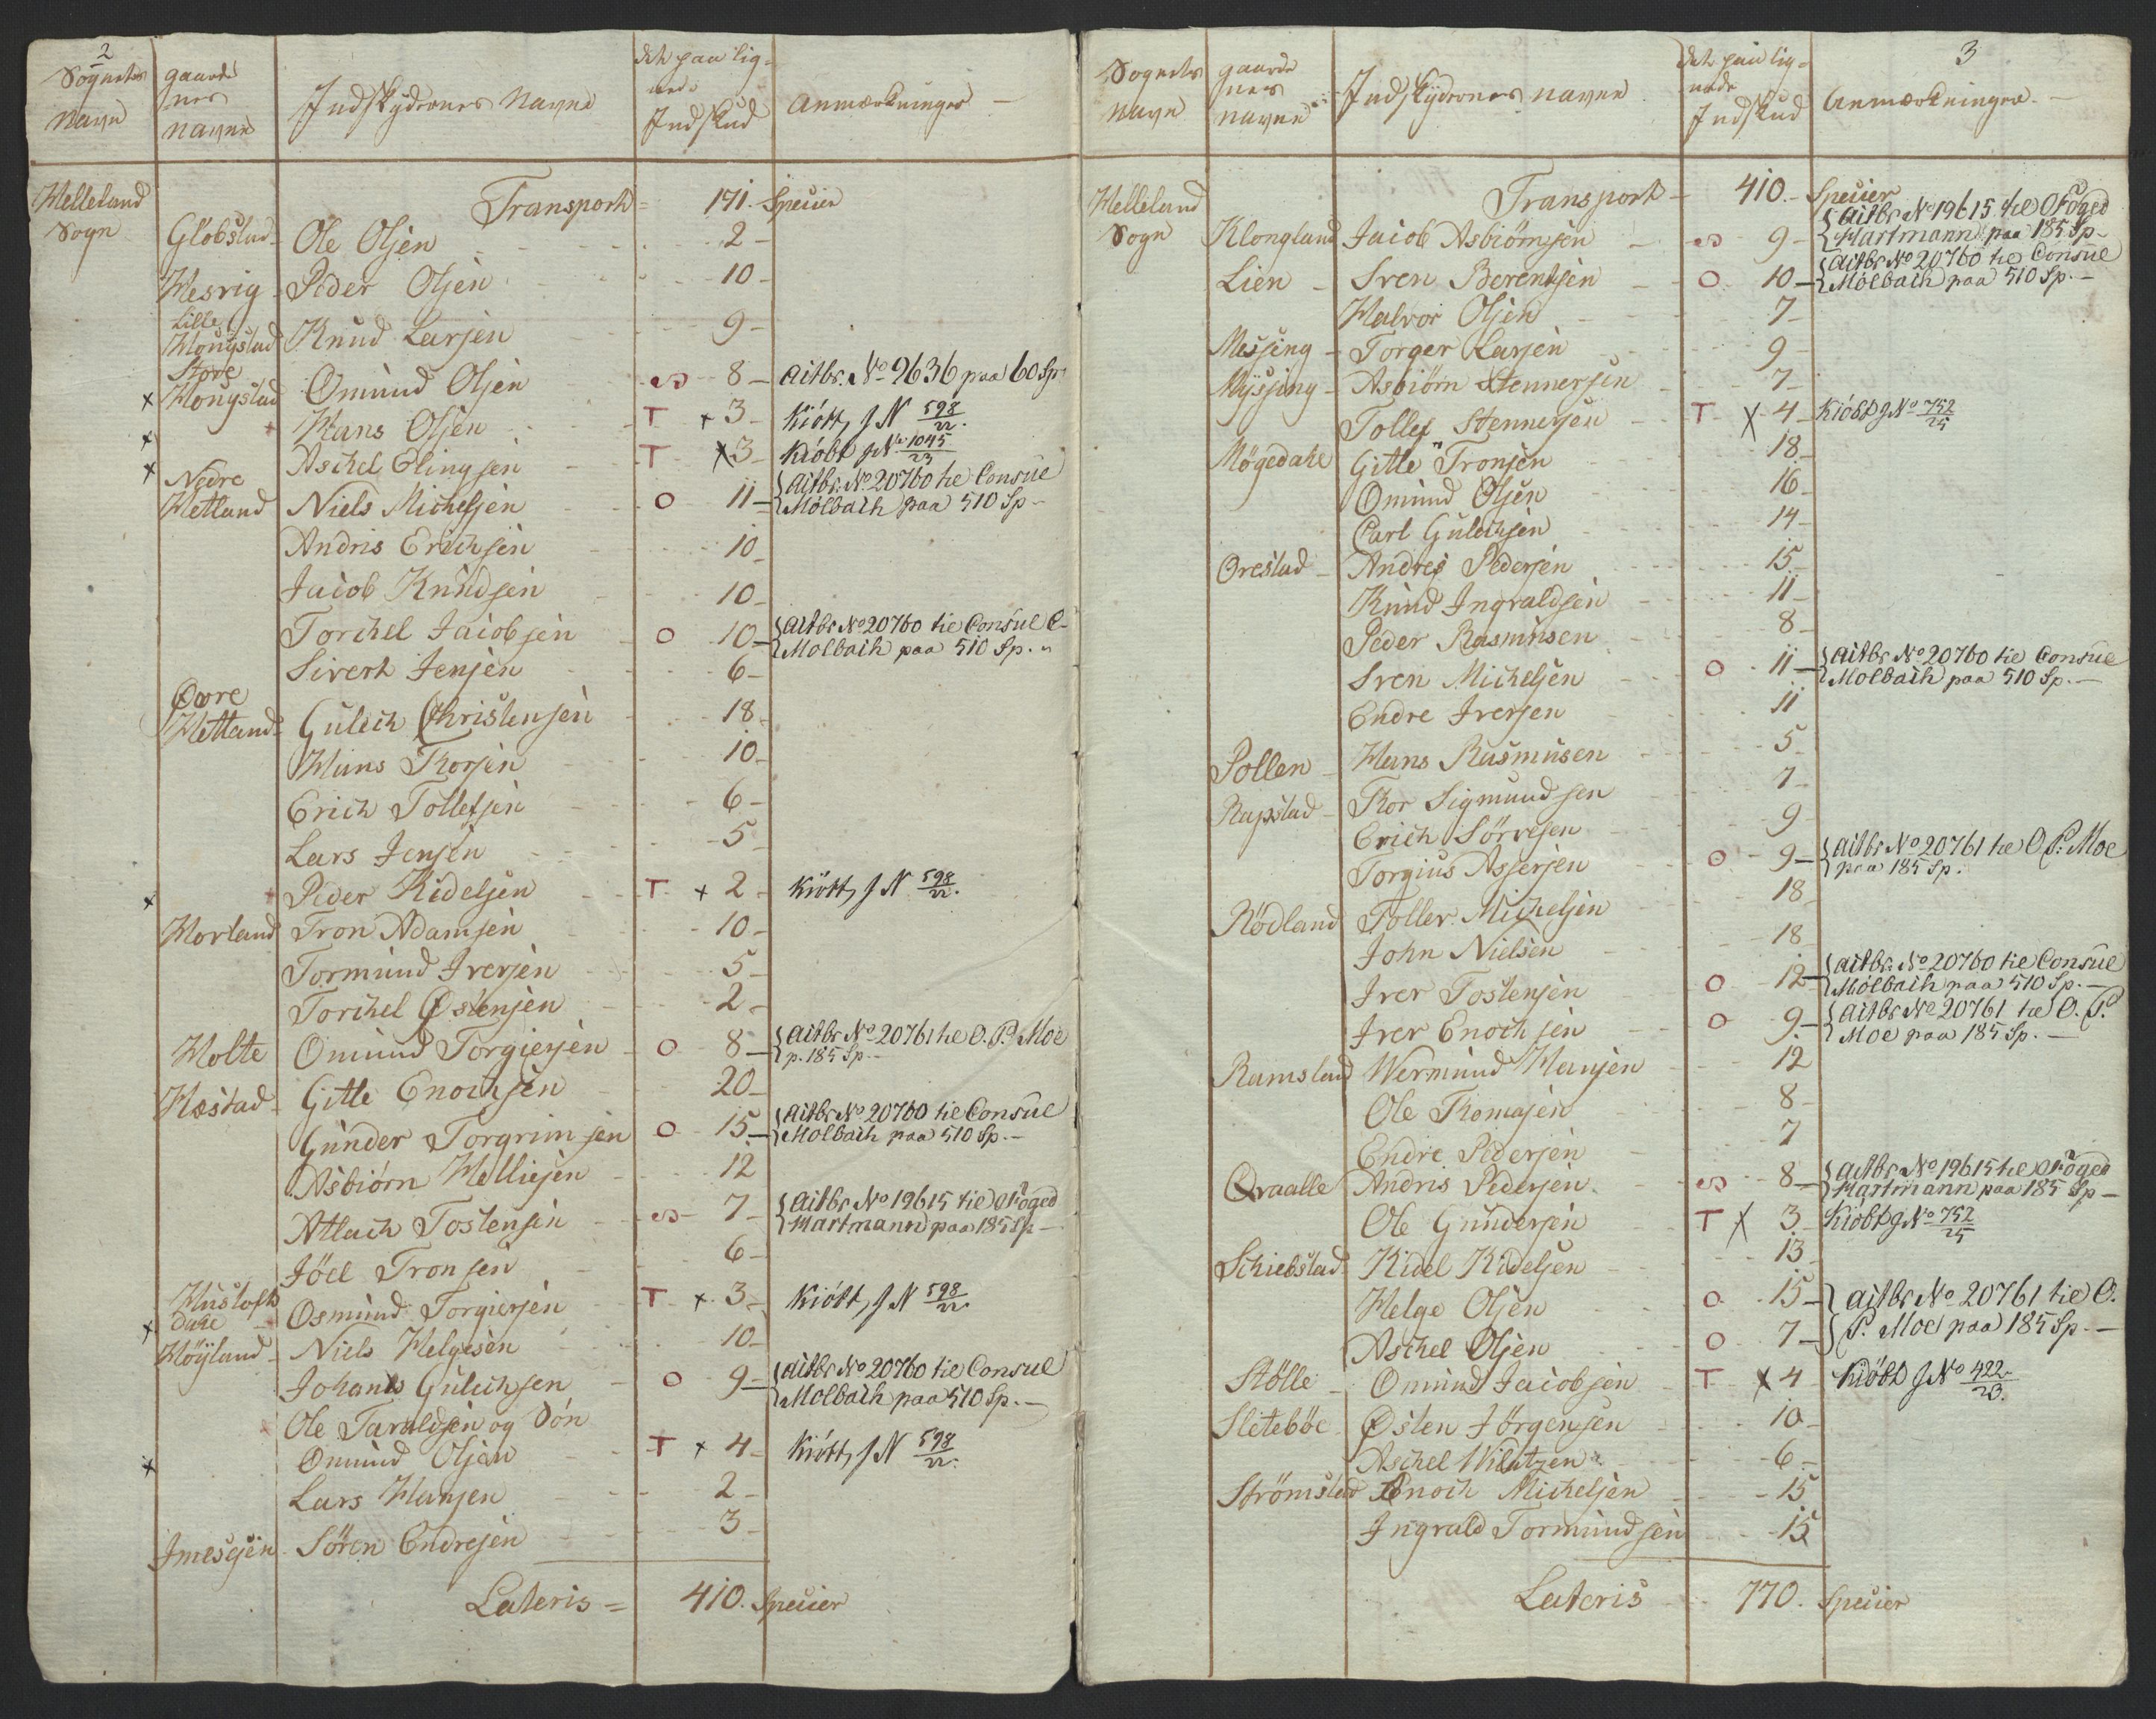 2
Sognets Navn | gaardenes navne | Indskydernes Navne | det paa lignede Indskud | Anmærkninger
Helleland Sogn | Transport = 171. Specier
Globstad Ole Olsen 2
Hesvig Peder Olsen 10
Lille Hougstad Knud Larsen 9
Store Hougstad Omund Olsen 8 actbr. No 9636 paa 60 Sp.
x Hans Olsen T x 3 Kiøbt, J N 598/22.
x Aschel Elingsen T x 3 Kiøbt J No 1045/23
x Nedre Hetland Niels Michelsen O 11 actbr. No 20760 til Consul
Molbach paa 510 Sp
Andris Erichsen 10
Jacob Knudsen 10
Torchel Jacobsen O 10 actbr No 20760 til Consul C.
Molbach paa 510 Sp.
Sivert Jensen 6
Øvre Hetland Gulich Christensen 18
Hans Thorsen 10
Erich Tollefsen 6
Lars Jensen 5
x Peder Kidelsen T x 2 Kiøbt, J N 598/22.
Horland Tron Adamsen 10
Tormund Iversen 5
Torchel Østensen 2
Holte Omund Torgiersen O 8 actbr No 20761 til O. P. Moe
p. 185 Sp.
Hæstad Gitle Enochsen 20
Gunder Torgrimsen O 15 actbr No 20760 til Consul
Molbach paa 510 Sp.
Asbiørn Helliesen 12
Atlach Tostensen 7 actbr No 19615 til OFoged
Hartmann paa 185 Sp
Jöel Tronsen 6
x Husloftdale Osmund Torgiersen T x 3 Kiøbt, J N 598/22.
Höyland Niels Helgesen 10
Johans Gulichsen O 9 actbr No 20760 til Consul
Molbach paa 510 Sp.
Ole Taraldsen og Søn
x Omund Olsen T x 4 Kiøbt, J N 598/22.
Lars Hansen 2
Søren Endresen 3
Lateris = 410. Specier
3
Sognets Navn | gaardenes navne | Indskydernes navne | det paa lignede Indskud | Anmærkninger
Helleland Sogn | Transport 410. Specier
Klongland Jacob Asbiörnsen 9 actbr No 19615 til OFoged
Hartmann paa 185 Sp
Lien Sven Berentsen O 10 actbr No 20760 til Consul
Molbach paa 510 Sp.
Halvor Olsen 7
Messing Torger Larsen 9
Myssing Asbiørn Stennersen 7
Tollef Stennersen T x 4 Kiøbt J No 752/25
Mögedahl Gitle Tronsen 18
Omund Olsen 16
Carl Gulichsen 14
Orestad Andres Pedersen 15
Knud Ingvaldsen 11
Peder Rasmusen 8
Sven Michelsen O 11 actbr No 20760 til Consul
Molbach paa 510 Sp.
Endre Iversen 11
Pollen Hans Rasmusen 5
Rapstad Thor Sigmundsen 7
Erich Sörvesen 9
Torgius Assersen O 9 actbr No 20761 til O. P. Moe
paa 185 Sp.
Rödland Tollev Michelsen 18
John Nielsen 18
Iver Tostensen O 12 actbr. No 20760 til Consul
Molbach paa 510 Sp.
Iver Enochsen O 9 actbr No 20761 til O. P.
Moe paa 185 Sp.
Ramsland Wermund Hansen 12
Ole Thomasen 8
Endre Pedersen 7
Qvaalle Andris Pedersen 8 actbr No 19615 til OFoged
Hartmann paa 185 Sp
Ole Gundersen T x 3 Kiøbt J No 752/25
Schiebstad Kidel Kidelsen 13
Helge Olsen O 15 actbr No 20761 til O.
Aschel Olsen O 7 P. Moe paa 185 Sp.
Stölle Omund Jacobsen T x 4 Kiøbt J No 422/23.
Sletebøe Østen Jörgensen 10
Aschel Wilatzen 6
Strömstad Enoch Michelsen 15
Ingvald Tormundsen 15
Lateris 770. Specier